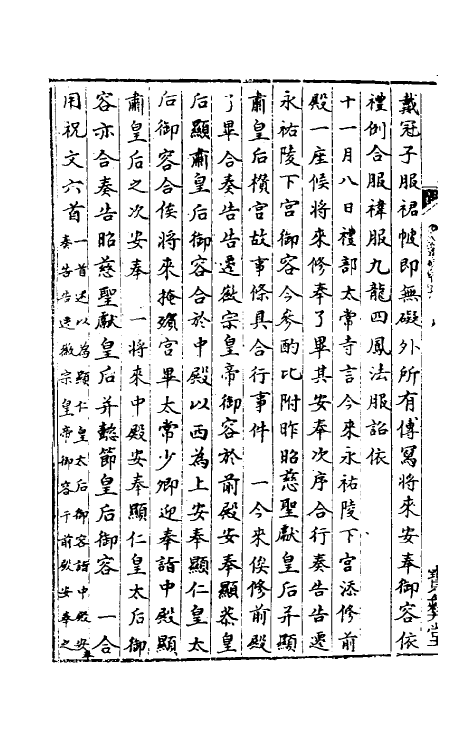 戴冠子服裙帔即無礙外所有傅寫將來安奉御容依
禮例合服褘服九龍四鳳法服詔依
十一月八日禮部太常寺言今來永祐陵下宮添修前
殿一座候將來修奉了畢其安奉次序合行奏告告遷
永祐陵下宮御容今參酌比附昨昭慈聖獻皇后并顯
肅皇后欑宮故事條具合行事件　一今來俟修前殿
了畢合奏告告遷徽宗皇帝御容於前殿安奉顯恭皇
后顯肅皇后御容合於中殿以西為上安奉顯仁皇太
后御容合俟將來掩欑宮畢太常少卿迎奉詣中殿顯
肅皇后之次安奉　一將來中殿安奉顯仁皇太后御
容亦合奏告昭慈聖獻皇后并懿節皇后御容　一合
用祝文六首
一首述以為顯仁皇太后御容詣中殿安
奏告告遷徽宗皇帝御容于前殿安奉之